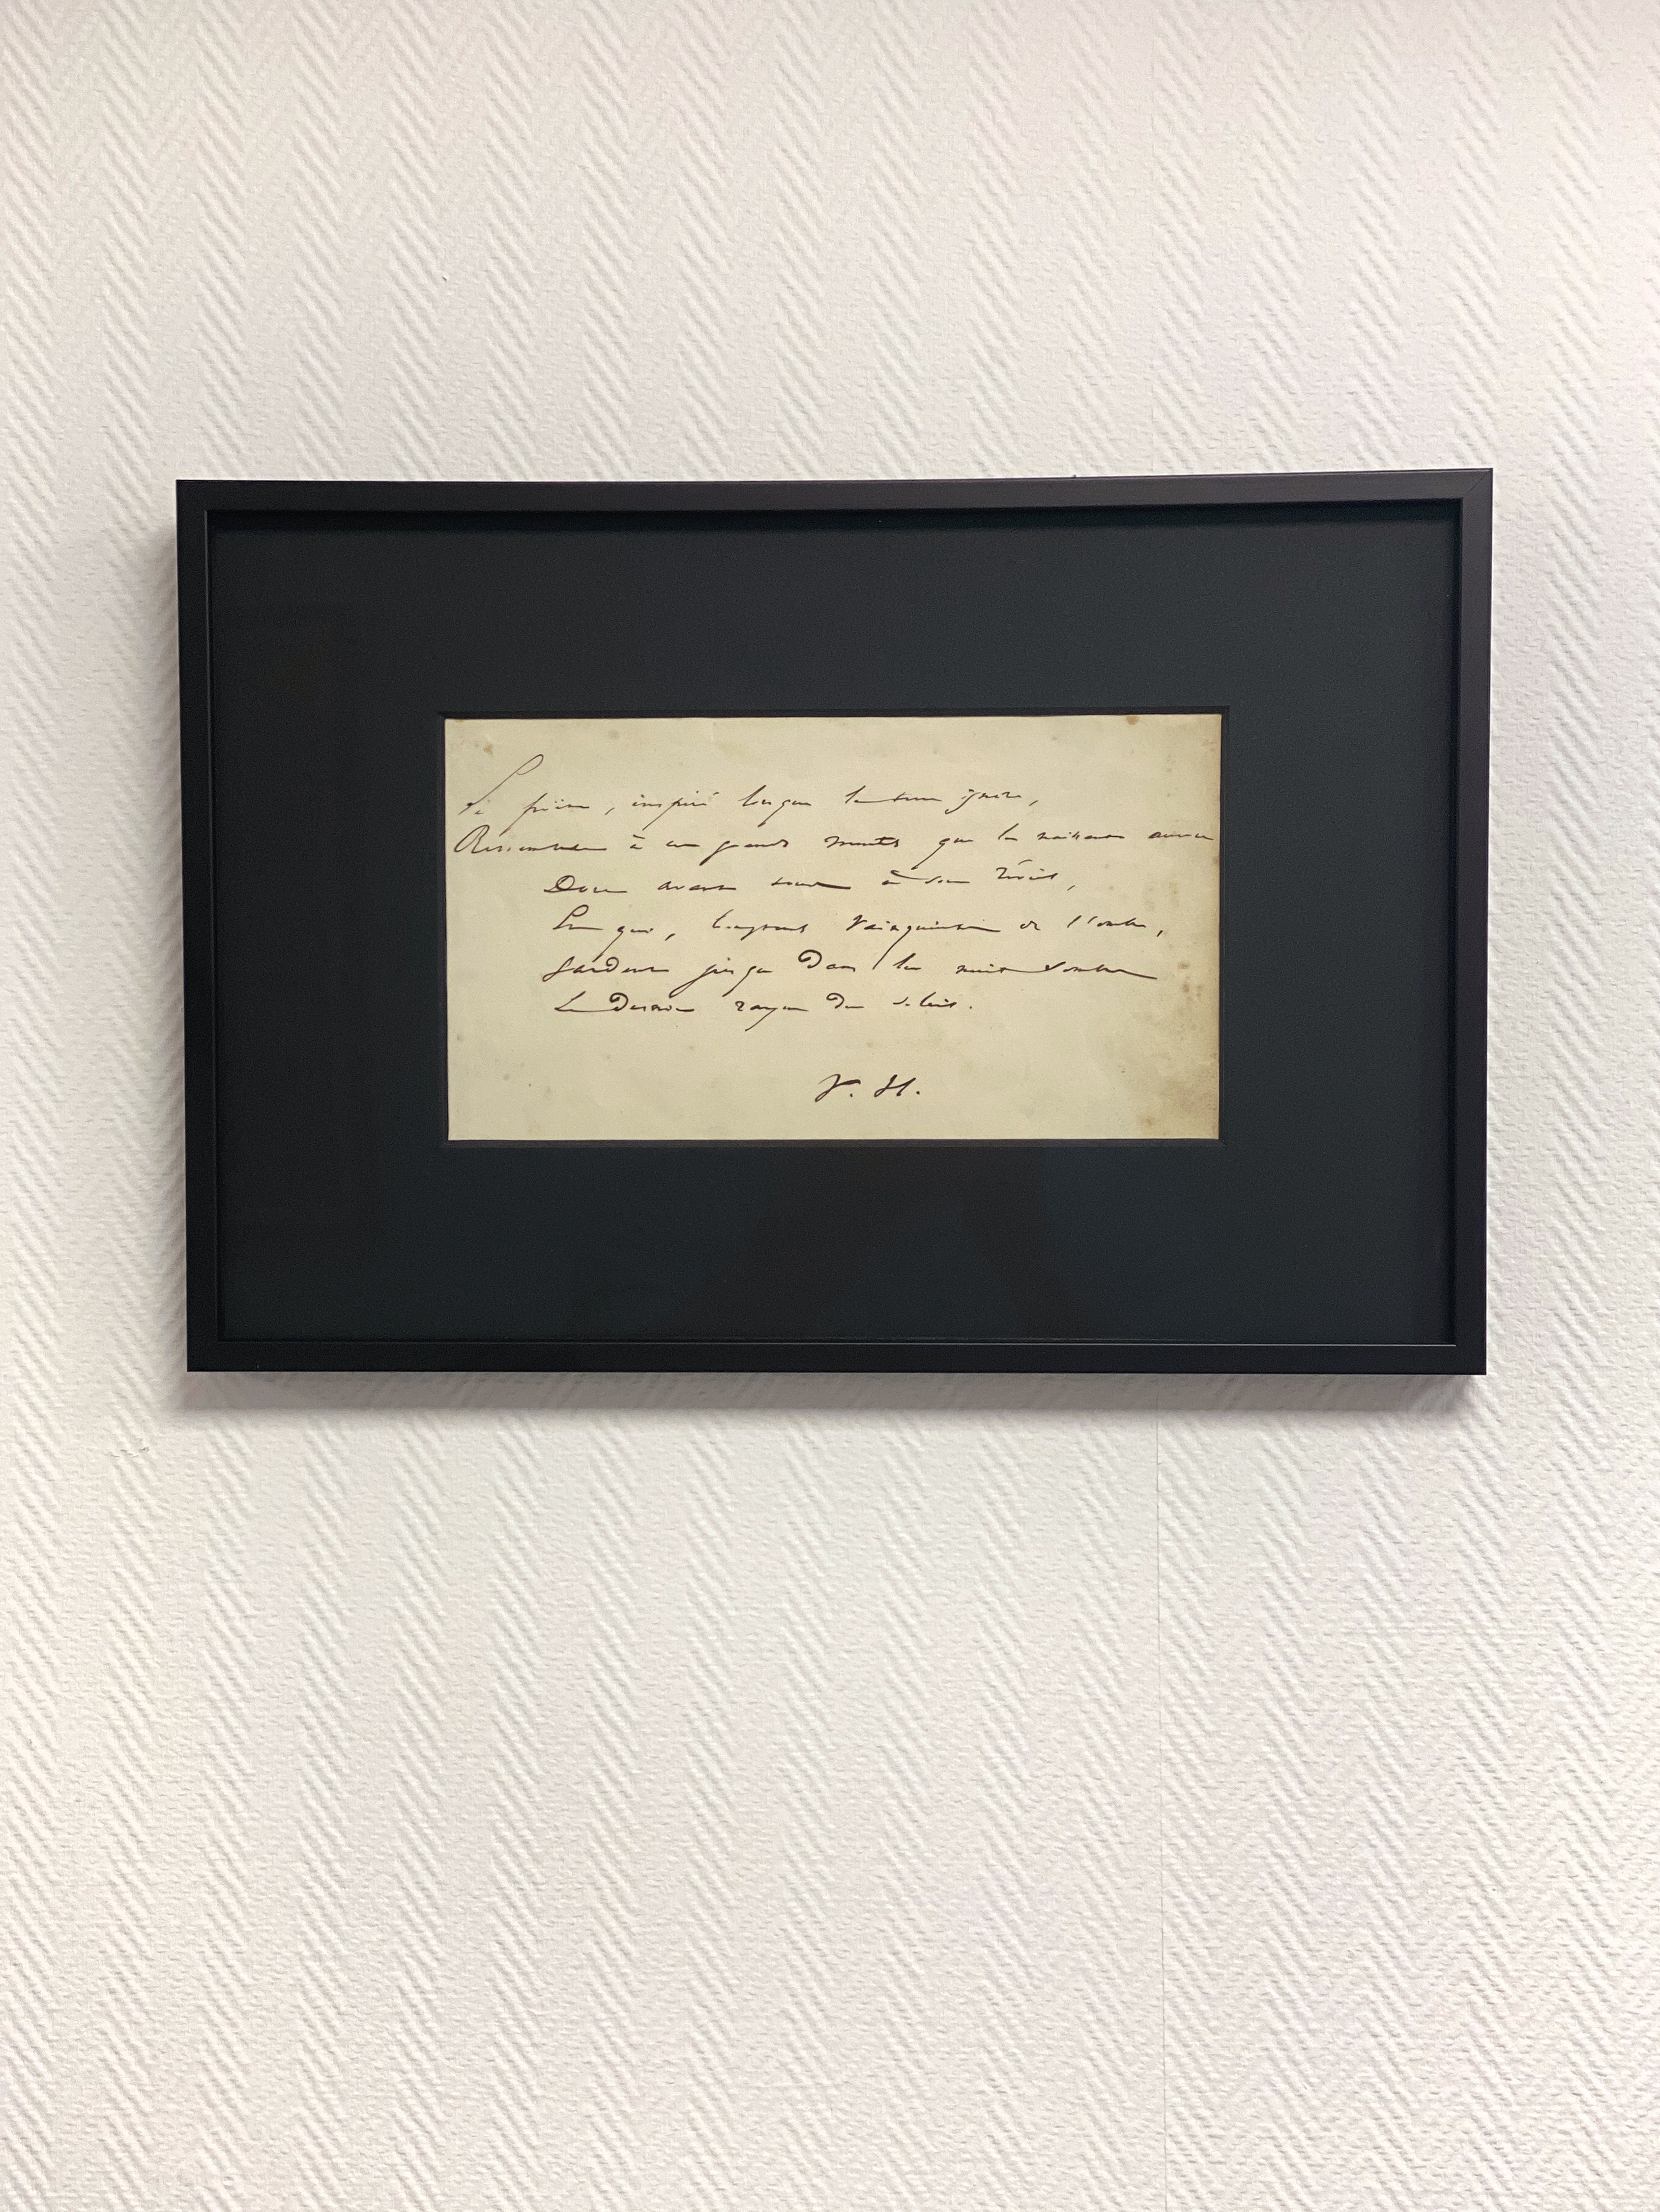 Le poëte, inspiré lorsque la terre ignore,
Ressemble à ces grands monts que la aurore
Dore avant tous à son réveil,
Et qui, longtemps vainqueurs de l'ombre,
Gardent jusque dans la nuit sombre
Le dernier rayon du soleil.
V. H.